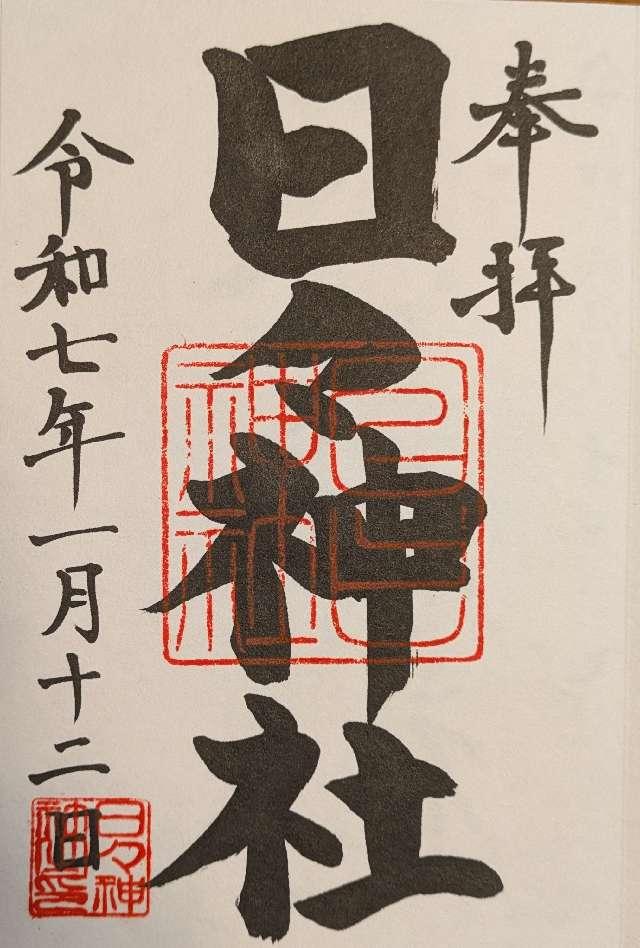 奉拝
日々神社
日日神社
令和七年一月十二日